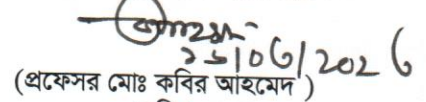 ২১/০৬/২০২৬
(প্রফেসর মোঃ কবির আহমেদ)